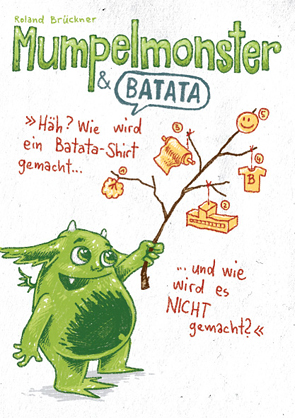 Roland Brückner
Mumpelmonster
& BATATA
»Häh? Wie wird
ein Batata-Shirt
gemacht...
5
3
4
1
B
2
... und wie
wird es
NICHT
gemacht?«